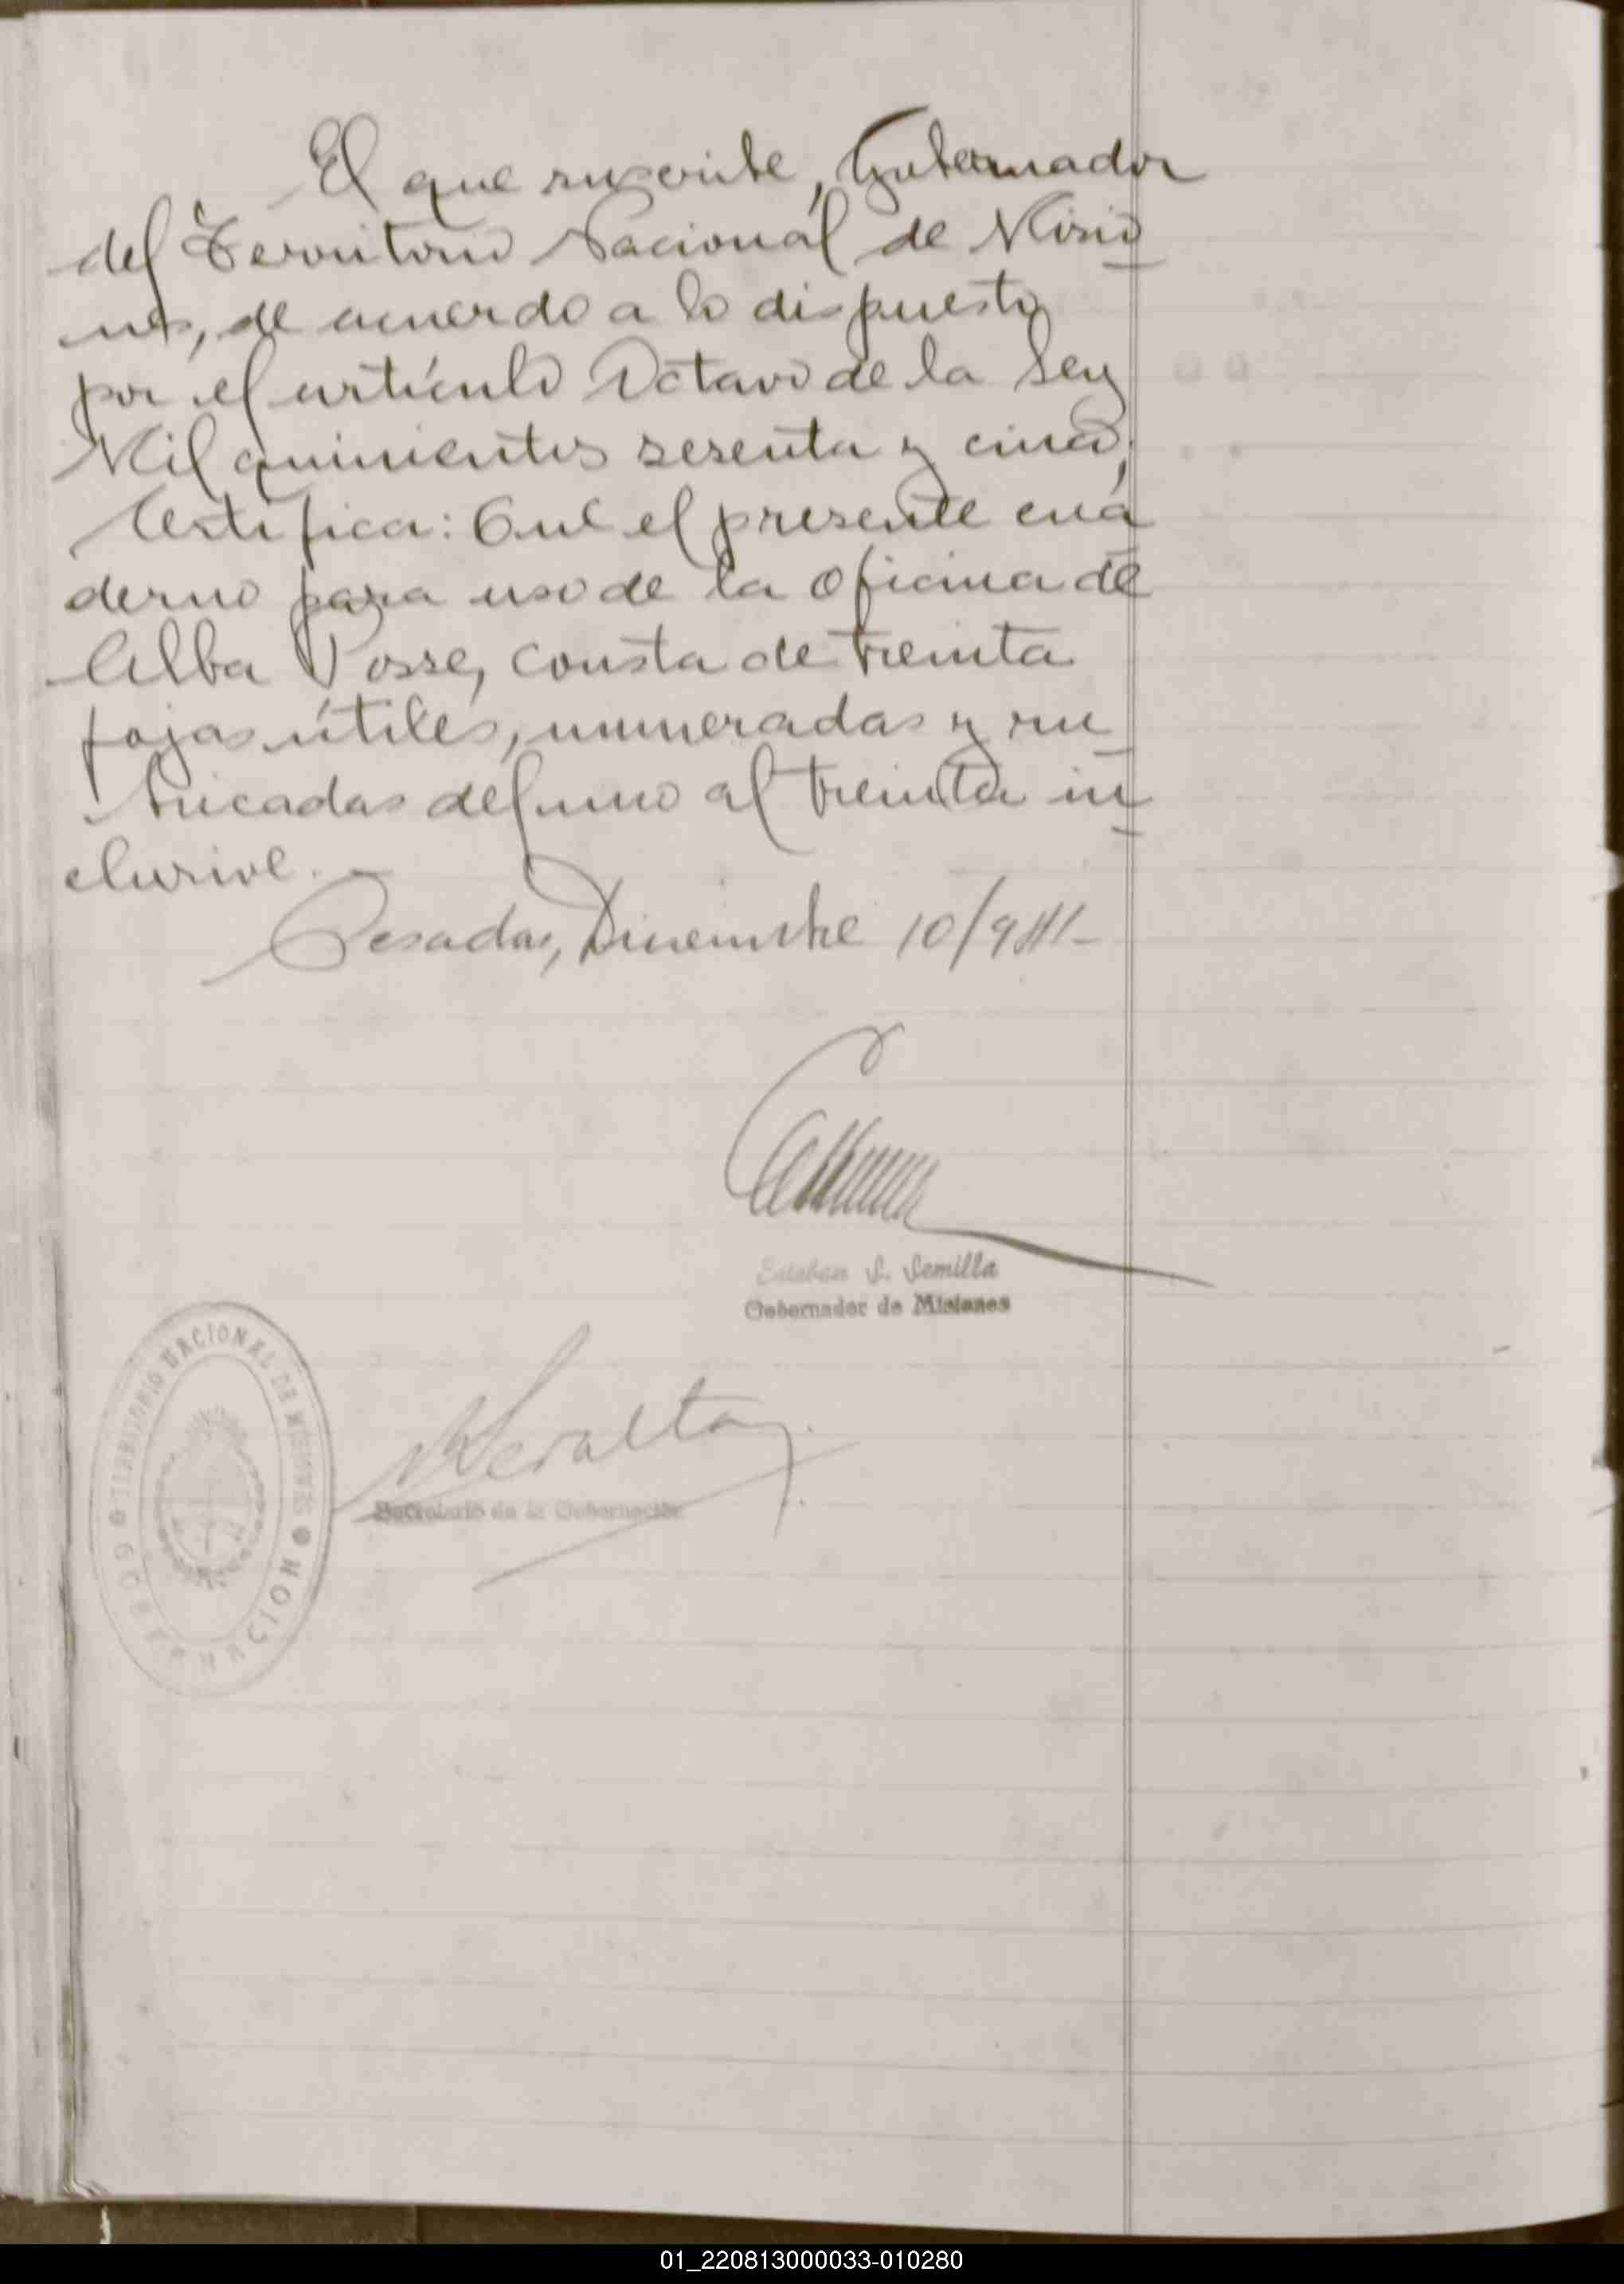 El que suscribe, Gobernador
del Territorio Nacional de Misio
nes, de acuerdo a lo dispuesto
por el artículo Octavo de la Ley
Mil quinientos sesenta y cinco,
Certifica: Que el presente cua
derno para uso de la Oficina de
Alba Posse, consta de treinta
fojas útiles, numeradas y ru
bricadas del uno al treinta in
clusive.
Posadas, Diciembre 10/941-
Esteban S. Semilla
Gobernador de Misiones
Peralta
Secretario de la Gobernación
TERRITORIO NACIONAL DE MISIONES
GOBERNACION
01_220813000033-010280